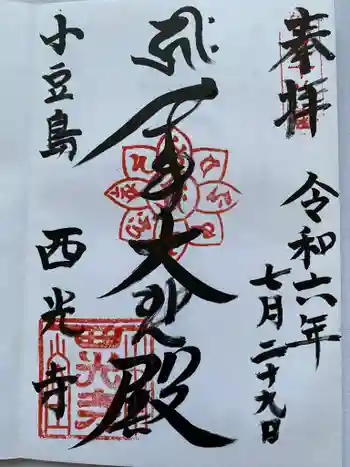 奉拝
令和六年
七月二十九日
大師殿
小豆島
西光寺